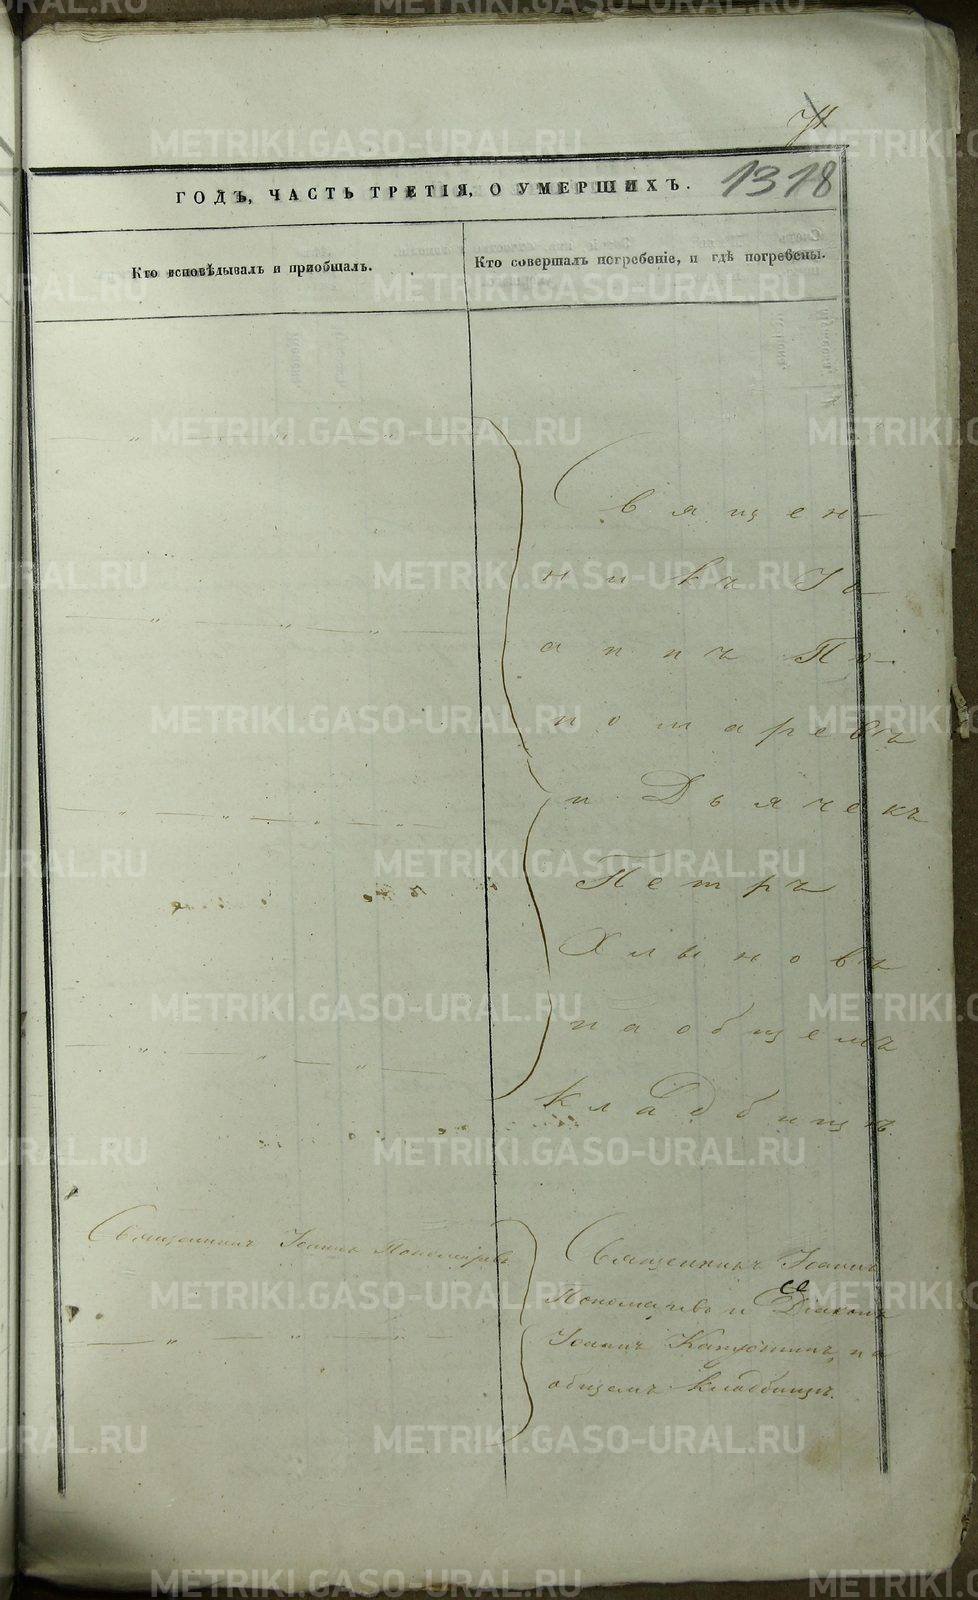 1318
ГОДЪ, ЧАСТЬ ТРЕТІЯ, О УМЕРШИХЪ.
Кто исповѣдывалъ и пріобщалъ.
Кто совершалъ погребеніе, и гдѣ погребены.
Священ-
никъ Іо-
аннъ По-
номаревъ
и Дьячекъ
Петръ
Хлыновъ
на общемъ
кладбищѣ.
Священникъ Іоаннъ Пономаревъ
Священникъ Іоаннъ
Пономаревъ и Діаконъ
Іоаннъ Капустинъ, на
общемъ кладбищѣ.
METRIKI.GASO-URAL.RU